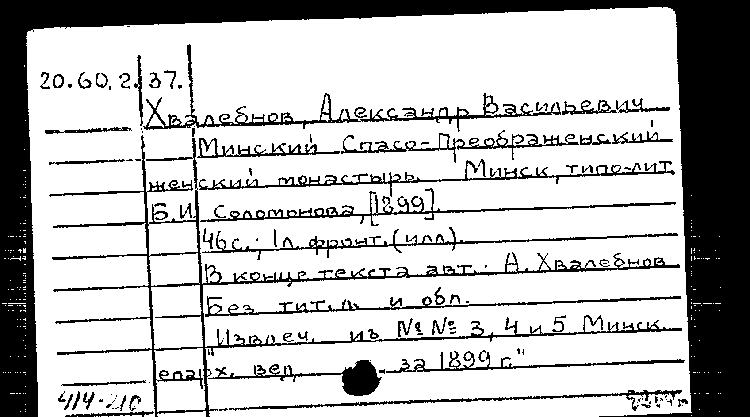 20.60.2.37.
Хвалебнов, Александр Васильевич
Минский Спасо-Преображенский
женский монастырь. Минск, типо-лит.
Б.И. Соломонова, [1899].
46с.; 1л. фронт. (илл).
В конце текста авт.: А. Хвалебнов
Без тит. л. и обл.
"Извлеч. из №№ 3, 4 и 5 Минск.
епарх. вед. за 1899 г."
414-210